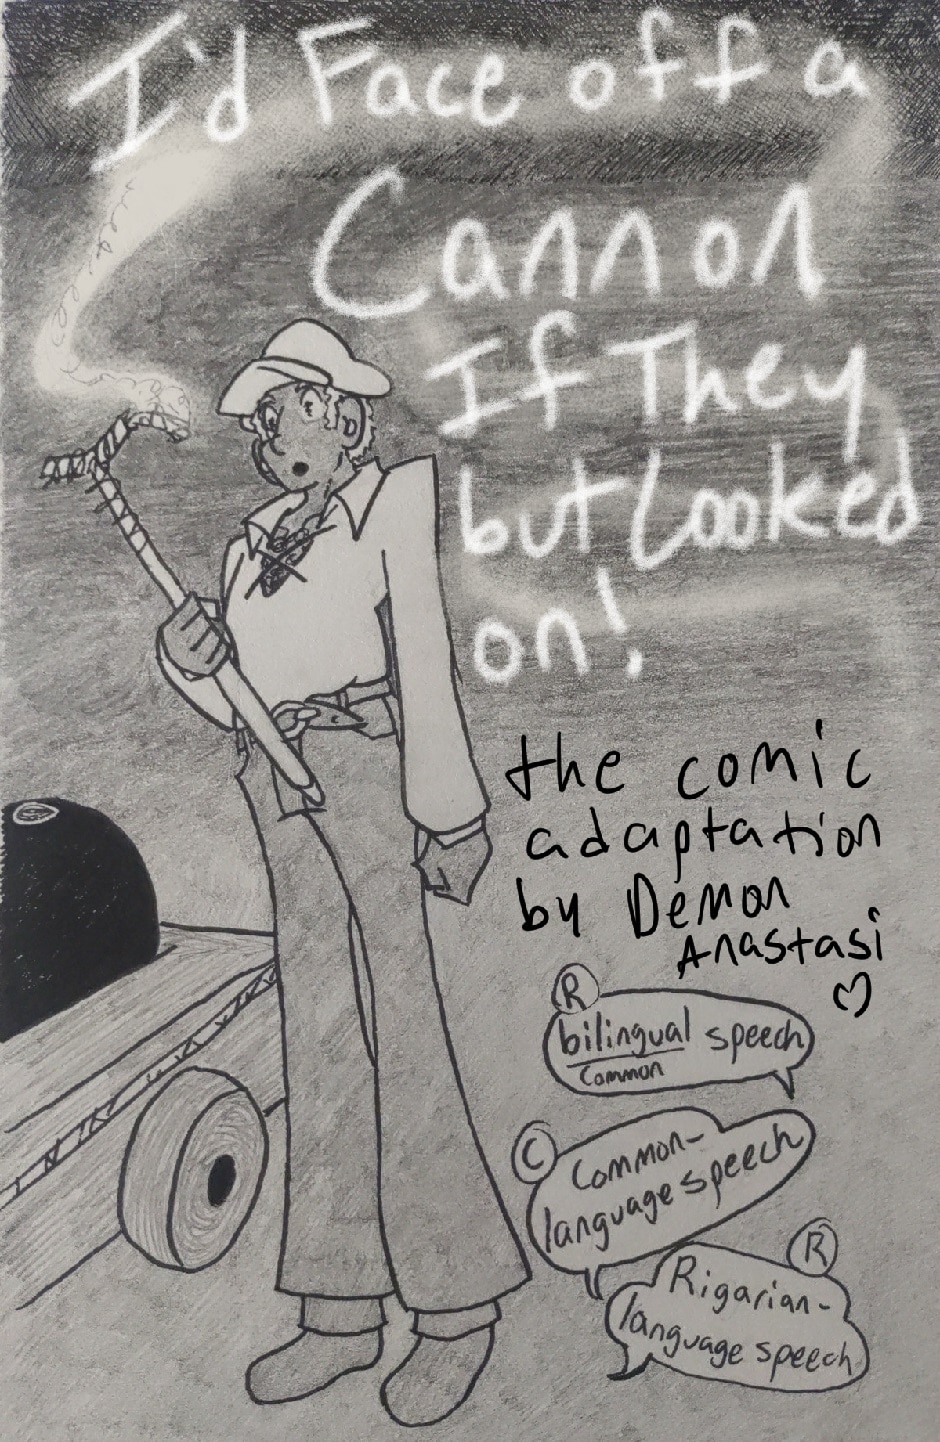 I'd Face off a
Cannon
If They
but Looked
on!
the comic
adaptation
by Demon
Anastasi
R
bilingual speech
Common
C
Common-
language speech
R
Rigarian-
language speech